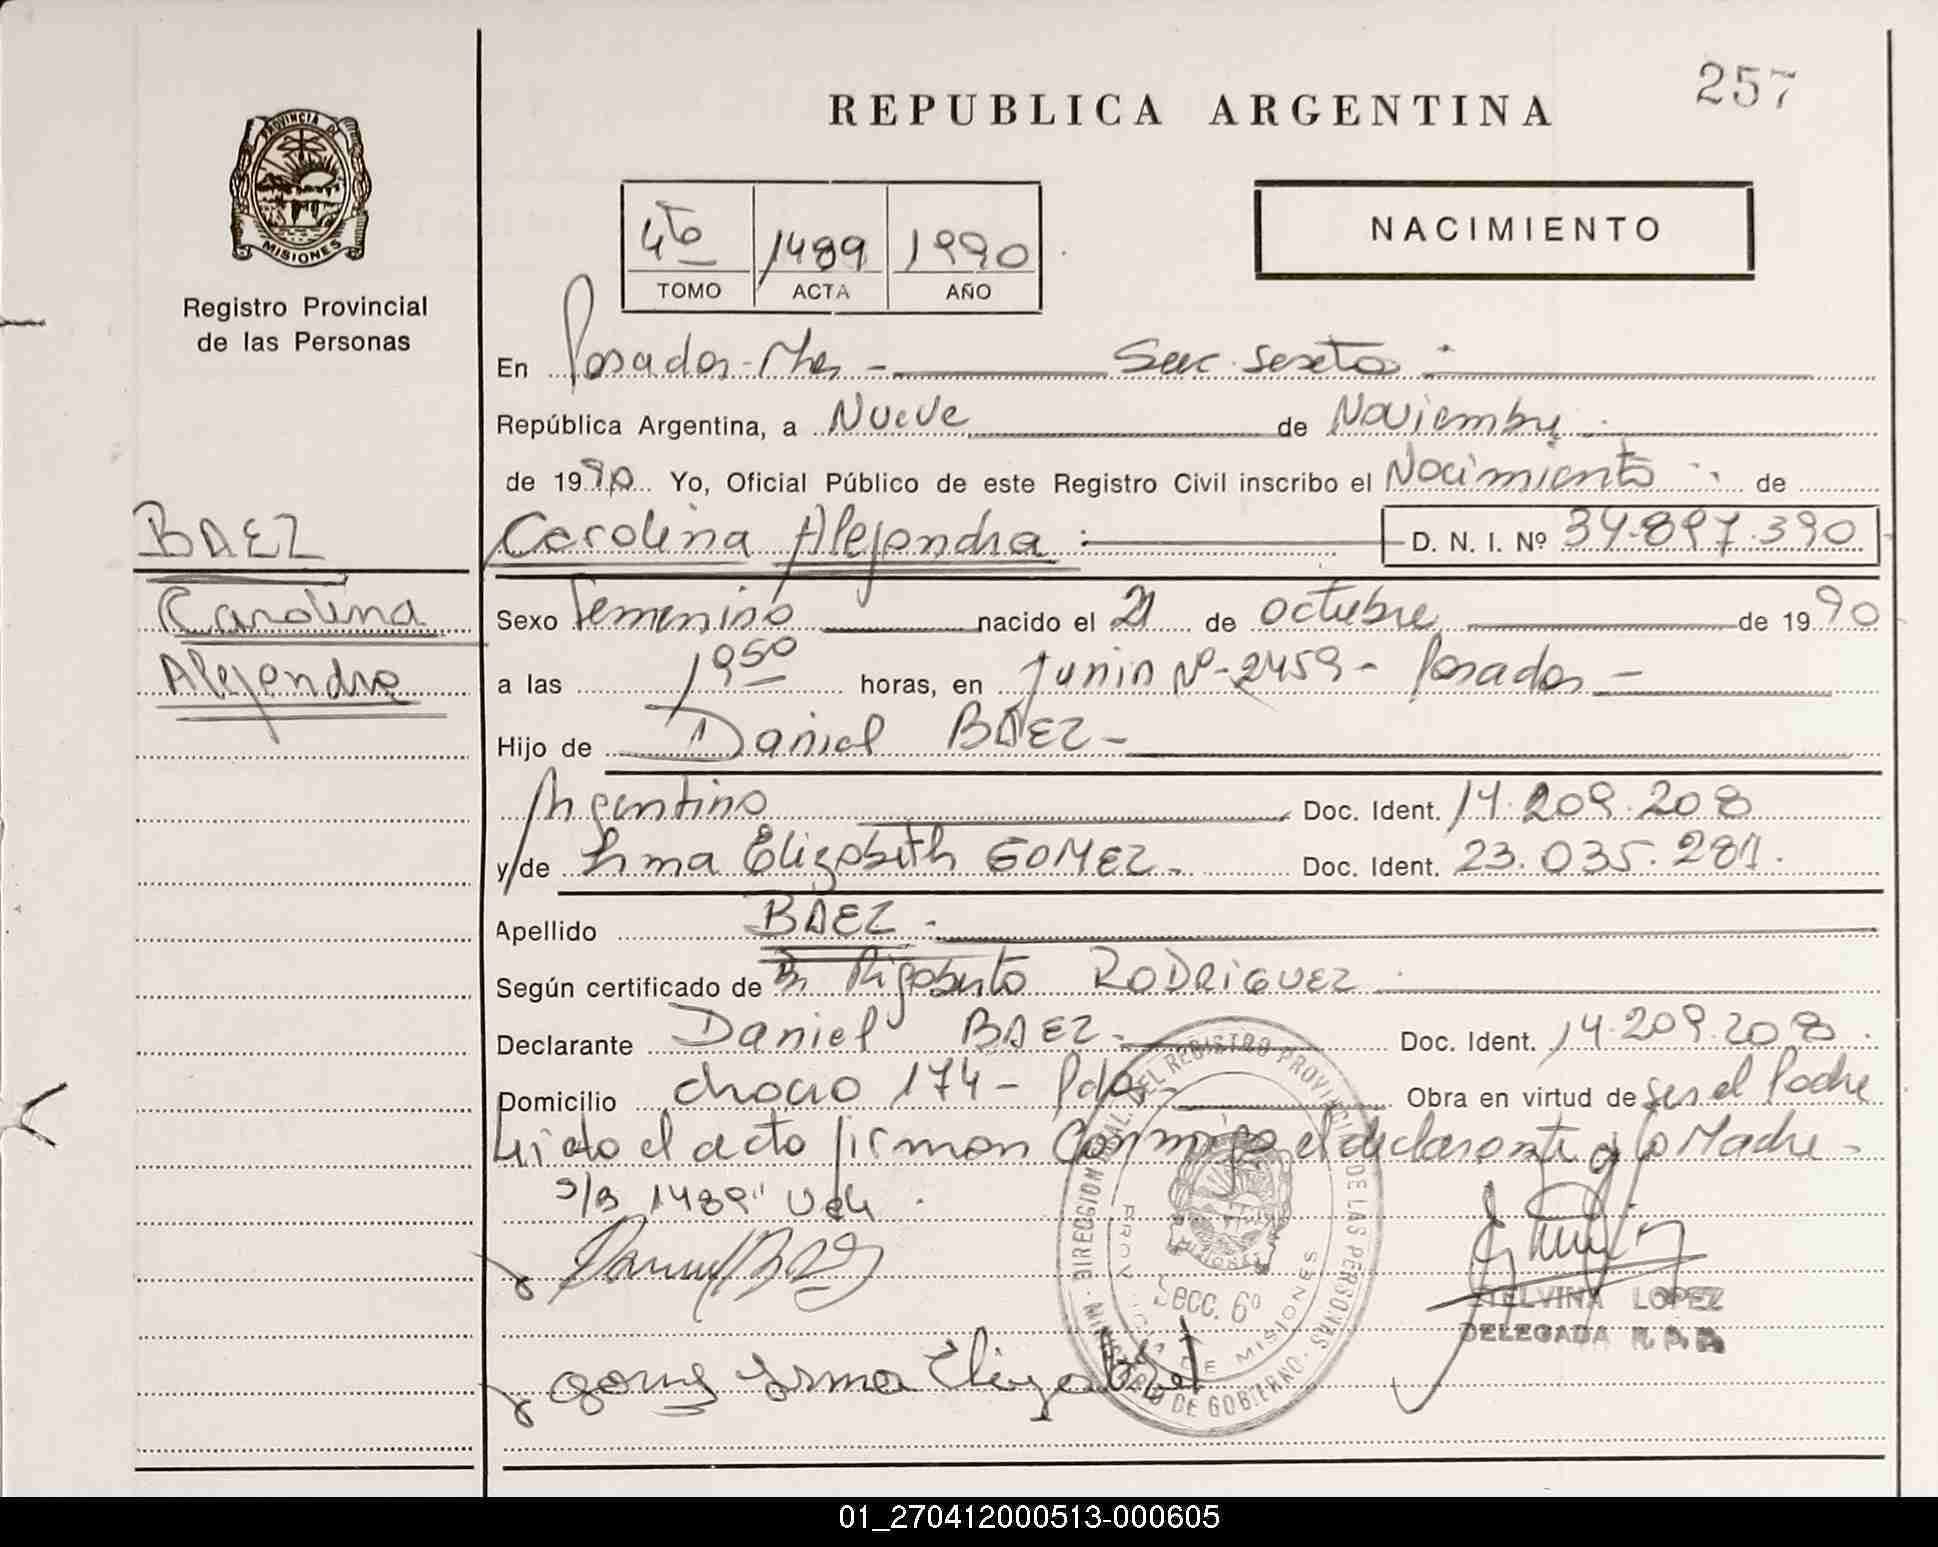 257
REPUBLICA ARGENTINA
PROVINCIA DE
MISIONES
Registro Provincial
de las Personas
4to 1489 1990
TOMO ACTA AÑO
NACIMIENTO
En Posadas - Mnes - Secc. sexta
República Argentina, a Nueve de Noviembre
de 1990 Yo, Oficial Público de este Registro Civil inscribo el Nacimiento de
BAEZ
Carolina Alejandra D. N. I. Nº 34.897.390
Carolina
Alejandra
Sexo Femenino nacido el 21 de octubre de 1990
a las 1950 horas, en Junin Nº 2459 - Posadas -
Hijo de Daniel BAEZ -
Argentino Doc. Ident. 14.209.208
y/de Irma Elizabeth GOMEZ - Doc. Ident. 23.035.281.
Apellido BAEZ -
Según certificado de Dr Rigoberto RODRIGUEZ
Declarante Daniel BAEZ - Doc. Ident. 14.209.208.
Domicilio chaco 174 - Pdas - Obra en virtud de ser el Padre
Leida el acta firman conmigo el declarante y la Madre -
S/B 1489" Vale
Daniel Baez
Gomez Irma Elizabet
DIRECCION GRAL. DEL REGISTRO PROVINCIAL DE LAS PERSONAS
MINISTERIO DE GOBIERNO
PROVINCIA DE MISIONES
Secc. 6º
ETELVINA LOPEZ
DELEGADA R. P. P.
01_270412000513-000605